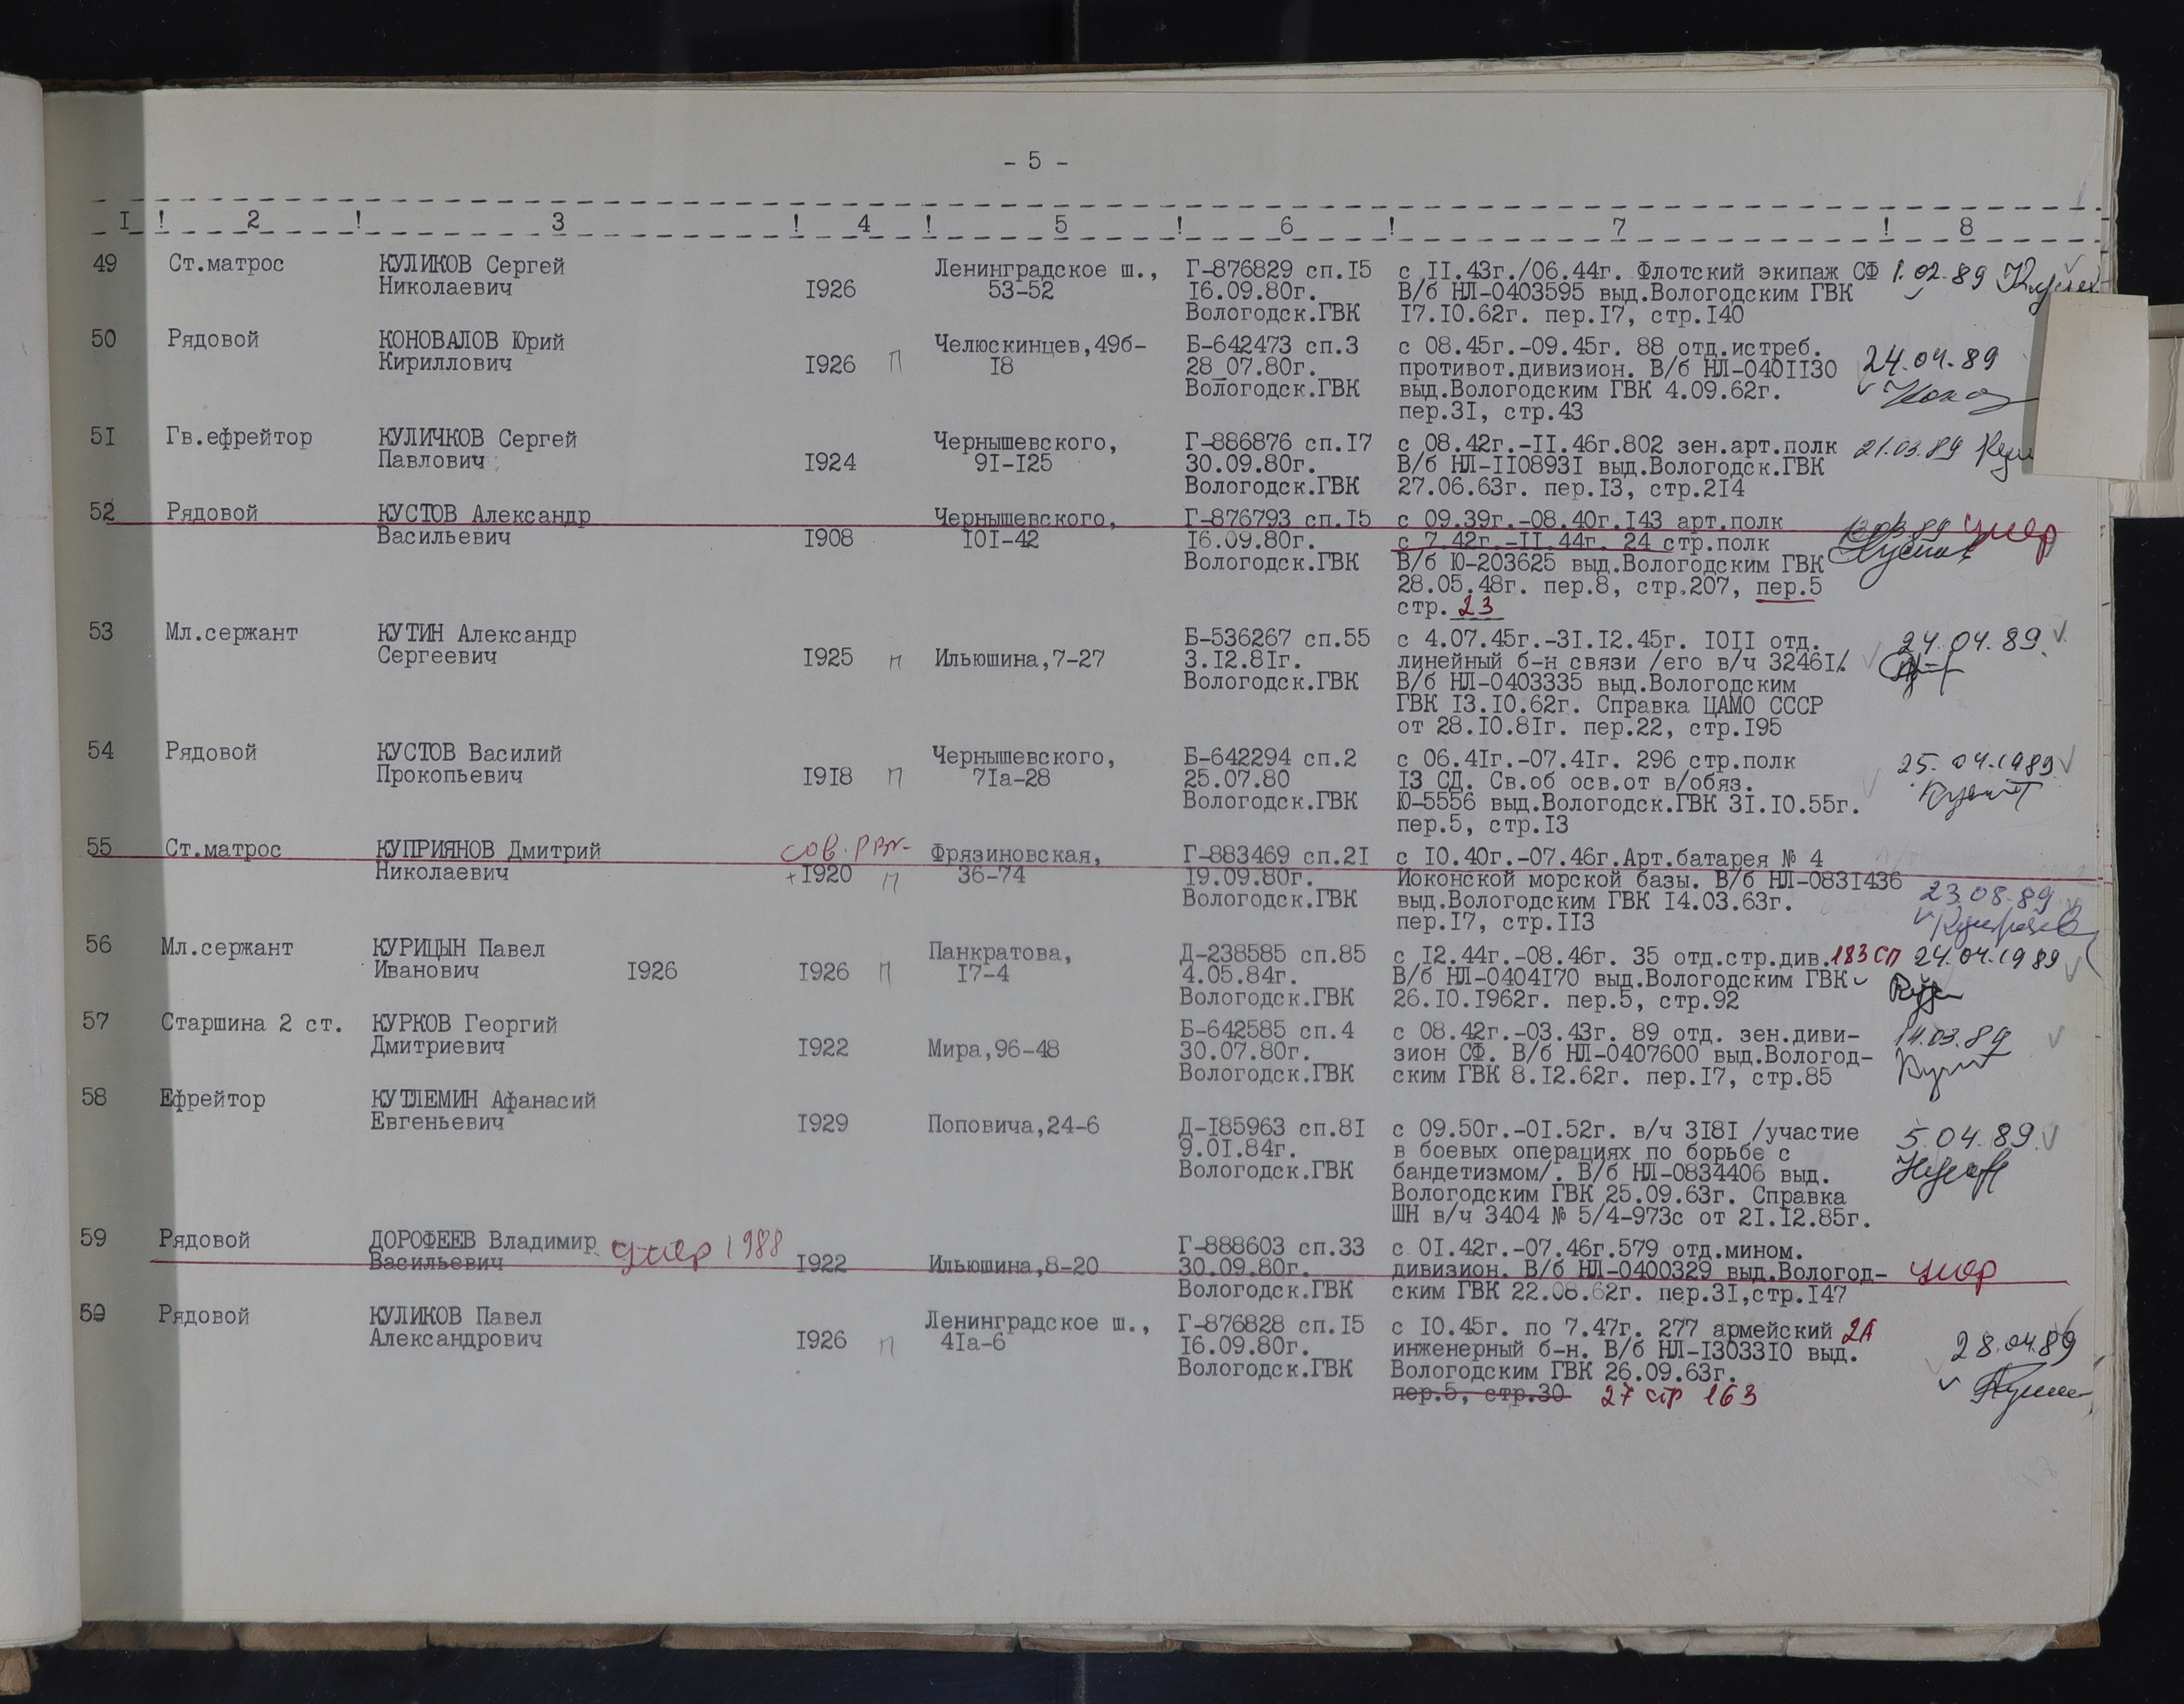 - 5 -
I ! 2 ! 3 ! 4 ! 5 ! 6 ! 7 ! 8
49 Ст.матрос КУЛИКОВ Сергей Ленинградское ш., Г-876829 сп.I5 с II.43г./06.44г. Флотский экипаж СФ 1.02.89
Николаевич I926 53-52 I6.09.80г. В/б НЛ-0403595 выд.Вологодским ГВК
Вологодск.ГВК I7.I0.62г. пер.I7, стр.I40
50 Рядовой КОНОВАЛОВ Юрий Челюскинцев,49б- Б-642473 сп.3 с 08.45г.-09.45г. 88 отд.истреб. 24.04.89
Кириллович I926 П I8 28_07.80г. противот.дивизион. В/б НЛ-040II30
Вологодск.ГВК выд.Вологодским ГВК 4.09.62г.
пер.3I, стр.43
5I Гв.ефрейтор КУЛИЧКОВ Сергей Чернышевского, Г-886876 сп.I7 с 08.42г.-II.46г.802 зен.арт.полк 21.03.89
Павлович I924 9I-I25 30.09.80г. В/б НЛ-II0893I выд.Вологодск.ГВК
Вологодск.ГВК 27.06.63г. пер.I3, стр.2I4
52 Рядовой КУСТОВ Александр Чернышевского, Г-876793 сп.I5 с 09.39г.-08.40г.I43 арт.полк умер
Васильевич I908 I0I-42 I6.09.80г. с 7.42г.-II.44г. 24 стр.полк
Вологодск.ГВК В/б Ю-203625 выд.Вологодским ГВК
28.05.48г. пер.8, стр.207, пер.5
стр. 23
53 Мл.сержант КУТИН Александр Б-536267 сп.55 с 4.07.45г.-3I.I2.45г. I0II отд. 24.04.89
Сергеевич I925 П Ильюшина,7-27 3.I2.8Iг. линейный б-н связи /его в/ч 3246I/.
Вологодск.ГВК В/б НЛ-0403335 выд.Вологодским
ГВК I3.I0.62г. Справка ЦАМО СССР
от 28.I0.8Iг. пер.22, стр.I95
54 Рядовой КУСТОВ Василий Чернышевского, Б-642294 сп.2 с 06.4Iг.-07.4Iг. 296 стр.полк 25.04.1989
Прокопьевич I9I8 П 7Iа-28 25.07.80 I3 СД. Св.об осв.от в/обяз.
Вологодск.ГВК Ю-5556 выд.Вологодск.ГВК 3I.I0.55г.
пер.5, стр.I3
55 Ст.матрос КУПРИЯНОВ Дмитрий сов. РВК Фрязиновская, Г-883469 сп.2I с I0.40г.-07.46г.Арт.батарея № 4
Николаевич +I920 П 36-74 I9.09.80г. Иоконской морской базы. В/б НЛ-083I436 23.08.89
Вологодск.ГВК выд.Вологодским ГВК I4.03.63г.
пер.I7, стр.II3
56 Мл.сержант КУРИЦЫН Павел Панкратова, Д-238585 сп.85 с I2.44г.-08.46г. 35 отд.стр.див. 183 СП 24.04.1989
Иванович I926 I926 П I7-4 4.05.84г. В/б НЛ-0404I70 выд.Вологодским ГВК
Вологодск.ГВК 26.I0.I962г. пер.5, стр.92
57 Старшина 2 ст. КУРКОВ Георгий Б-642585 сп.4 с 08.42г.-03.43г. 89 отд. зен.диви- 14.03.89
Дмитриевич I922 Мира,96-48 30.07.80г. зион СФ. В/б НЛ-0407600 выд.Вологод-
Вологодск.ГВК ским ГВК 8.I2.62г. пер.I7, стр.85
58 Ефрейтор КУТЛЕМИН Афанасий
Евгеньевич I929 Поповича,24-6 Д-I85963 сп.8I с 09.50г.-0I.52г. в/ч 3I8I /участие 5.04.89
9.0I.84г. в боевых операциях по борьбе с
Вологодск.ГВК бандетизмом/. В/б НЛ-0834406 выд.
Вологодским ГВК 25.09.63г. Справка
ШН в/ч 3404 № 5/4-973с от 2I.I2.85г.
59 Рядовой ДОРОФЕЕВ Владимир умер 1988 Г-888603 сп.33 с 0I.42г.-07.46г.579 отд.мином.
Васильевич I922 Ильюшина,8-20 30.09.80г. дивизион. В/б НЛ-0400329 выд.Вологод- умер
Вологодск.ГВК ским ГВК 22.08.62г. пер.3I,стр.I47
59 Рядовой КУЛИКОВ Павел Ленинградское ш., Г-876828 сп.I5 с I0.45г. по 7.47г. 277 армейский 2А
Александрович I926 П 4Iа-6 I6.09.80г. инженерный б-н. В/б НЛ-I3033I0 выд. 28.04.89
Вологодск.ГВК Вологодским ГВК 26.09.63г.
пер.5, стр.30 27 стр 163